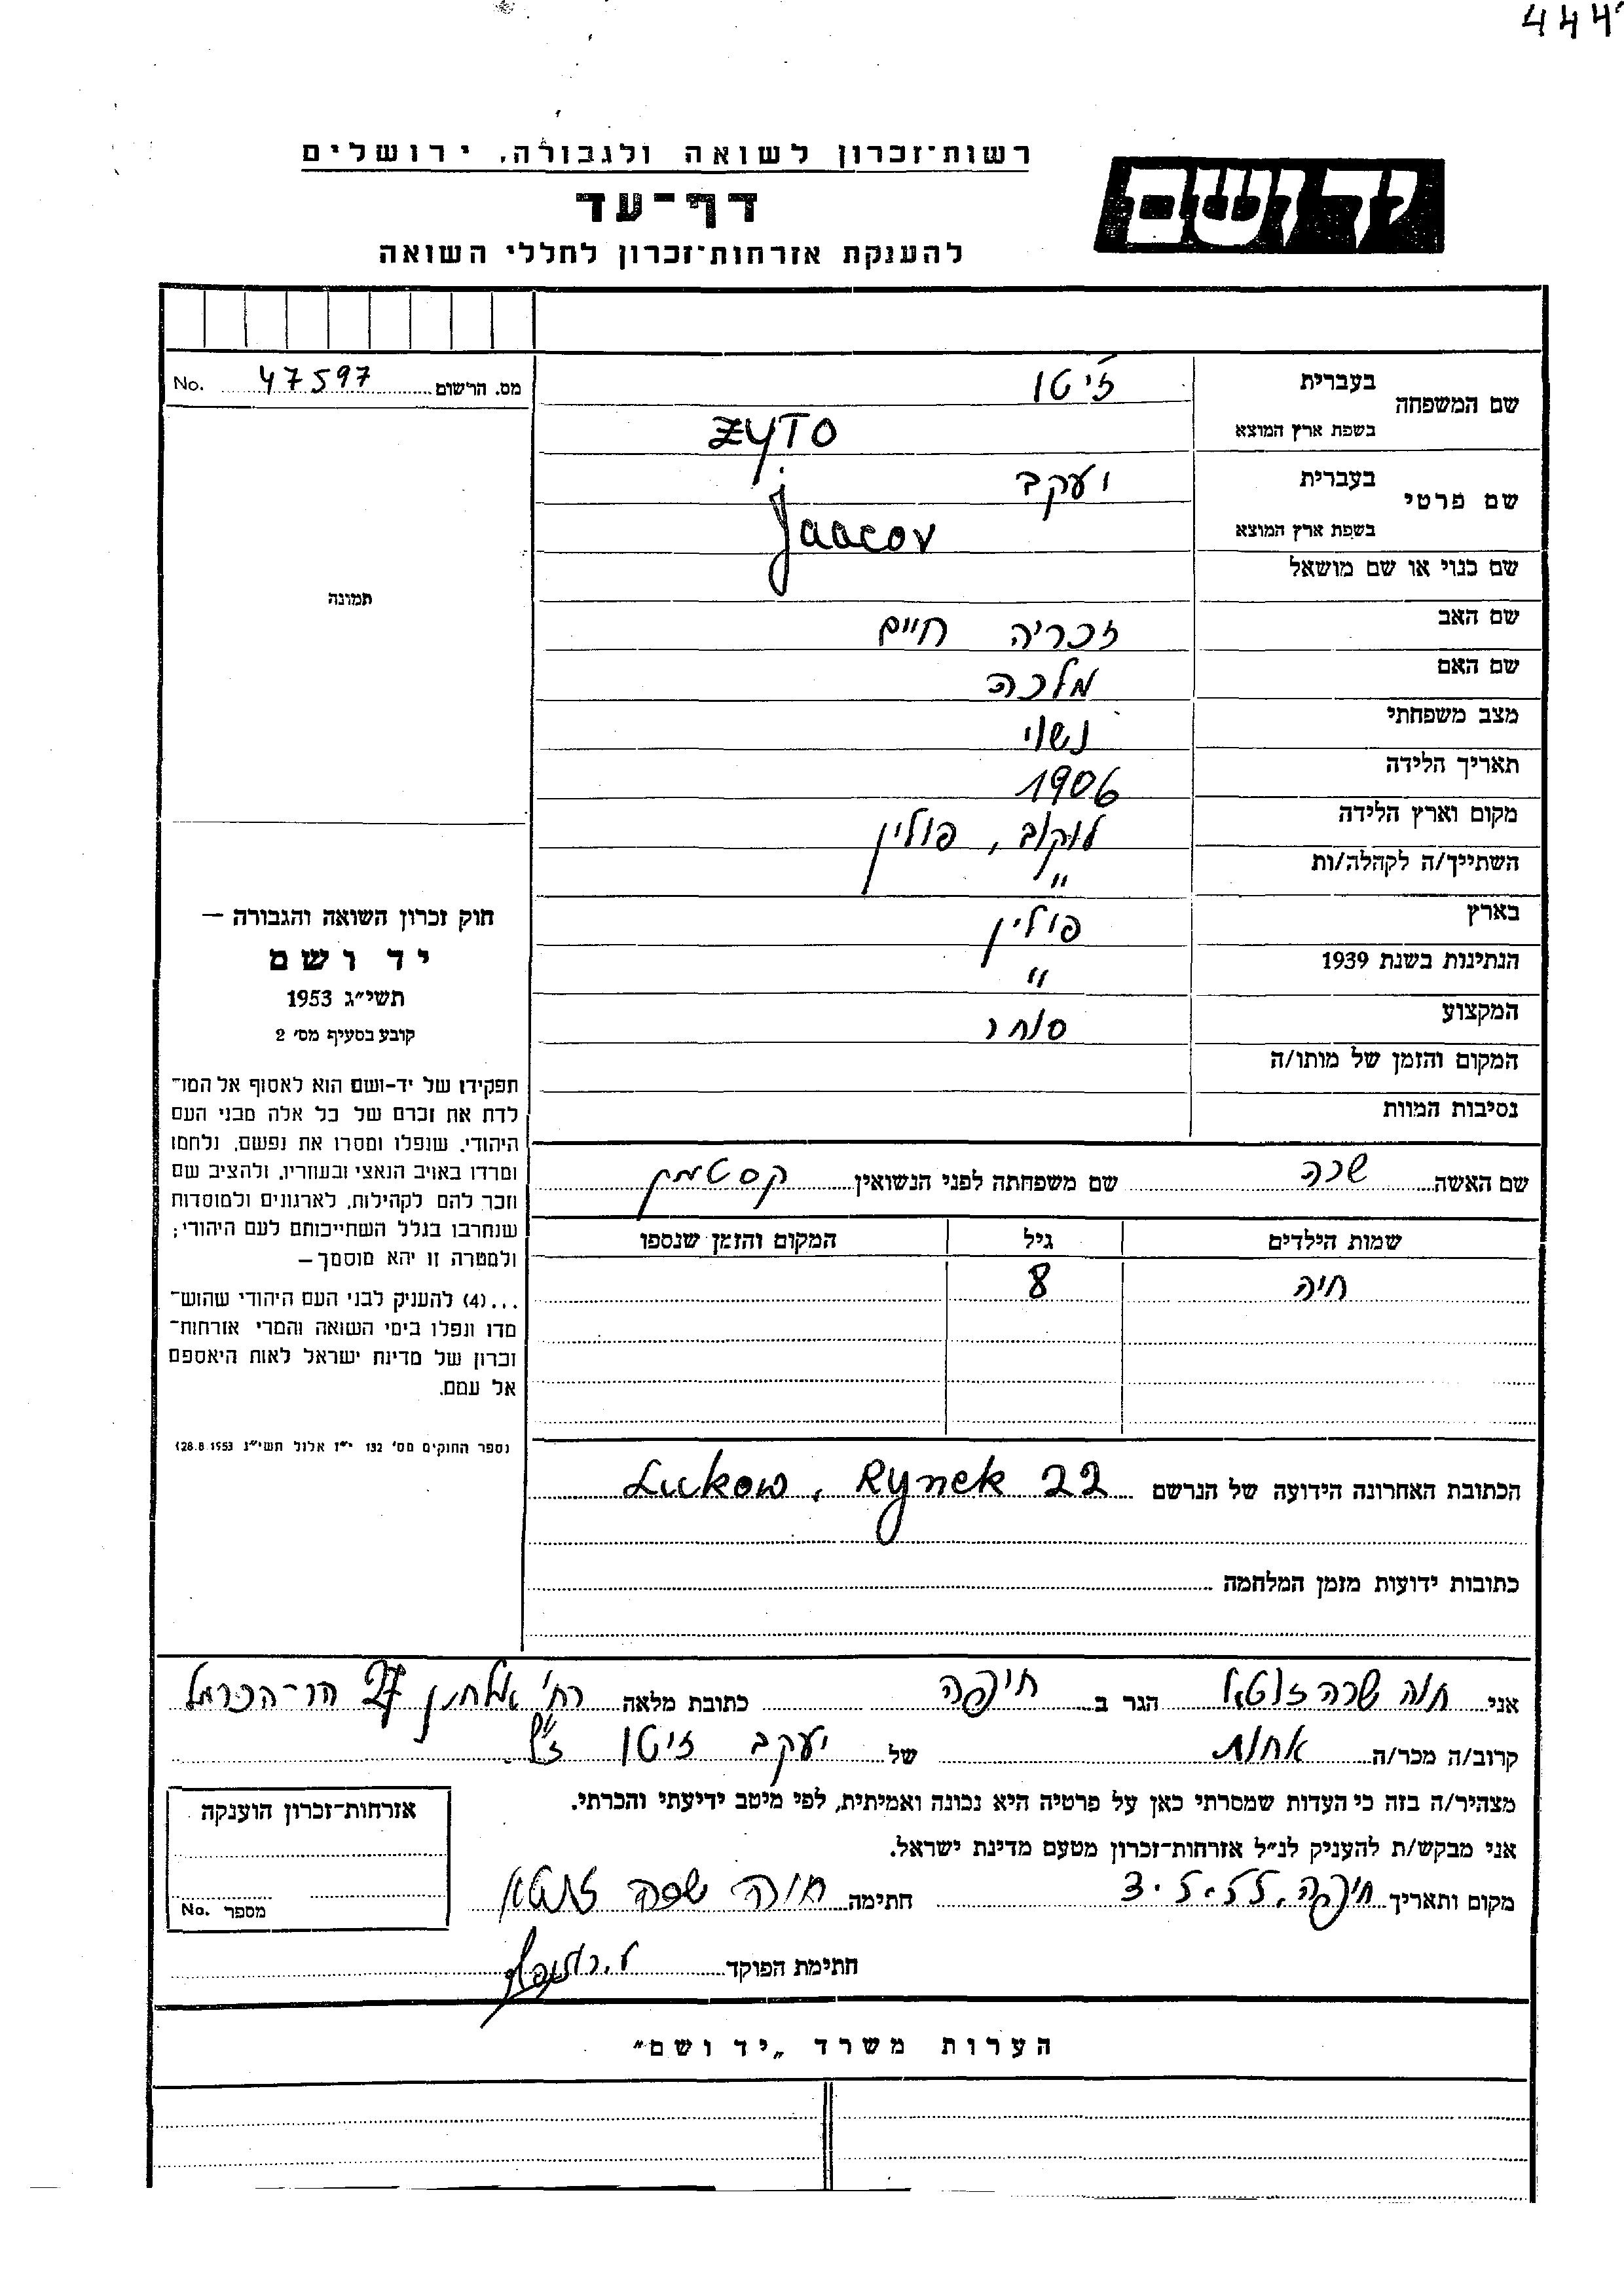 444
רשות־זכרון לשואה ולגבורה, ירושלים
יד ושם
דף־עד
להענקת אזרחות־זכרון לחללי השואה
מס. הרשום 47597 No.
תמונה
שם המשפחה
בעברית זיטו
בשפת ארץ המוצא ZYTO
שם פרטי
בעברית יעקב
בשפת ארץ המוצא Jaacov
שם כנוי או שם מושאל
שם האב זכריה חיים
שם האם מלכה
מצב משפחתי נשוי
תאריך הלידה 1906
מקום וארץ הלידה לוקוב, פולין
השתייך/ה לקהלה/ות "
בארץ פולין
הנתינות בשנת 1939 "
המקצוע סוחר
המקום והזמן של מותו/ה
נסיבות המוות
שם האשה שרה שם משפחתה לפני הנשואין קסטמן
שמות הילדים גיל המקום והזמן שנספו
חיה 8
הכתובת האחרונה הידועה של הנרשם Lukow, Rynek 22
כתובות ידועות מזמן המלחמה
חוק זכרון השואה והגבורה —
יד ושם
תשי״ג 1953
קובע בסעיף מס׳ 2
תפקידו של יד-ושם הוא לאסוף אל המו־
לדת את זכרם של כל אלה מבני העם
היהודי, שנפלו ומסרו את נפשם, נלחמו
ומרדו באויב הנאצי ובעוזריו, ולהציב שם
וזכר להם לקהילות, לארגונים ולמוסדות
שנחרבו בגלל השתייכותם לעם היהודי;
ולמטרה זו יהא מוסמך—
...(4) להעניק לבני העם היהודי שהוש־
מדו ונפלו בימי השואה והמרי אזרחות־
זכרון של מדינת ישראל לאות היאספם
אל עמם.
(ספר החוקים מס׳ 132 י״ז אלול תשי״ג 28.8.1953)
אני חוה שרה הגר ב חיפה כתובת מלאה רח׳ אלחנן 27 הר-הכרמל
קרוב/ה מכר/ה אחות של יעקב זיטו ז״ל
מצהיר/ה בזה כי העדות שמסרתי כאן על פרטיה היא נכונה ואמיתית, לפי מיטב ידיעתי והכרתי.
אני מבקש/ת להעניק לנ״ל אזרחות־זכרון מטעם מדינת ישראל.
מקום ותאריך חיפה, 3.5.55 חתימה חוה שרה
חתימת הפוקד
אזרחות־זכרון הוענקה
מספר No.
הערות משרד „יד ושם״